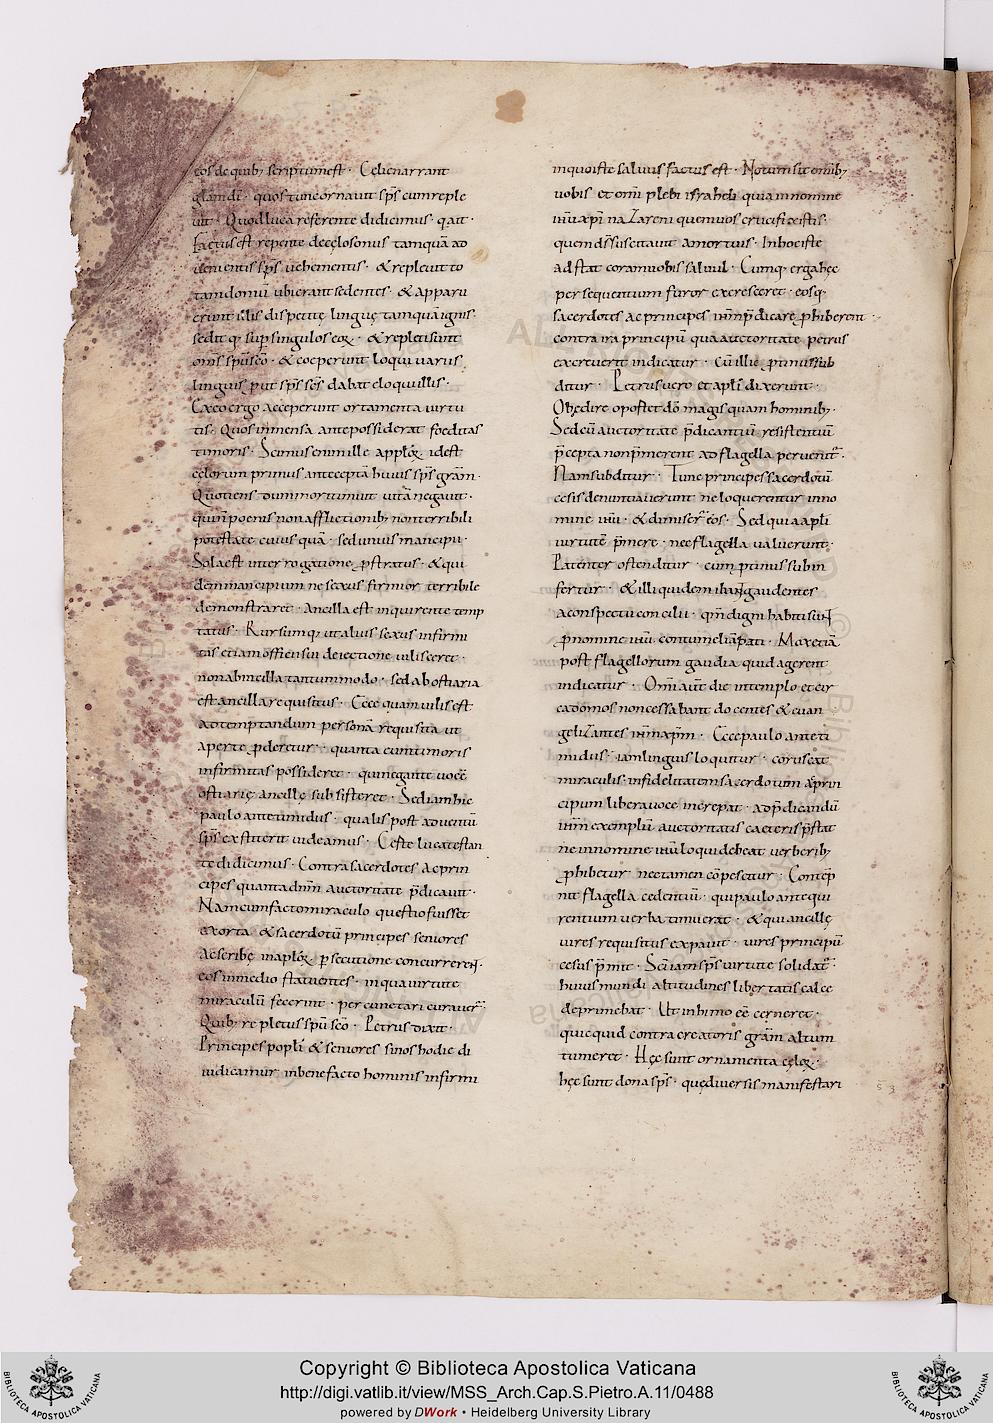 eos de quib; scriptum est · Celi enarrant
glam di · quos tunc ornauit sps cum reple
uit · Quod luca referente didicimus · q ait ·
Factus est repente de celo sonus tamquā ad
uenientis sps uehementis · & repleuit to
tam domū ubi erant sedentes · & apparu
erunt illis dispertite linguę tamquā ignis ·
sedit q; sup singulos eoꝝ · & repleti sunt
oms spu sco · & coeperunt loqui uariis
linguis prout sps scs dabat eloqui illis ·
Caeco ergo acceperunt ornamenta uirtu
tis · Quos inmensa ante possiderat foeditas
timoris · Scimus enim ille apploꝝ id est
celorum primus ante cepta huius sps gram ·
Quotiens dum mori timuit uitā negauit ·
quem poenis non afflictionib; non terribili
potestate cuius quā · sed unius mancipii ·
Sola est interrogatione prostratus · & qui
dem mancipium ne sexus firmior terribile
demonstraret · Ancilla est inquirente temp
tatus · Rursumq; ut alius sexus infirmi
tas etiam officii sui deiectione uilesceret ·
non ab ancilla tantummodo · sed ab ostiaria
est ancilla requisitus · Ecce quam uilis est
ad temptandum personā requisita ut
aperte proderetur · quanta eum timoris
infirmitas possideret · qui negante uocē
ostiarię ancillę subsisteret · Sed iam hic
paulo ante timidus · qualis post aduentū
sps exstiterit uideamus · Certe luca testan
te didicimus · Contra sacerdotes ac prin
cipes quanta dnm auctoritate pdicauit ·
Nam cum facto miraculo questio fuisset
exorta · & sacerdotū principes seniores
ac scribę in aploꝝ persecutione concurrerent ·
eos in medio statuentes · in qua uirtute
miraculū fecerint · percunctari curauer ·
Quib; repletus spu sco · Petrus dixit ·
Principes popli & seniores · si nos hodie di
iudicamur in benefacto hominis infirmi
in quo iste saluus factus est · Notum sit omib;
uobis et omi plebi israheli quia in nomine
ihu xpi nazareni quem uos crucifixistis ·
quem ds suscitauit a mortuis · In hoc iste
adstat coram uobis saluus · Cumq; erga hęc
persequentium furor excresceret · eosq;
sacerdotes ac principes ihm pdicare prohiberent ·
contra ira principū qua auctoritate petrus
excreuerit indicatur · Cū illic protinus sub
ditur · Petrus uero et apli dixerunt ·
Obędire oportet dō magis quam hominib; ·
Sed cū auctoritate pdicantiū resistentiū
pcepta non pmerent ad flagella peruenit ·
Nam subditur · Tunc principes sacerdotū
cesis denuntiauerunt ne loquerentur in no
mine ihu · & dimiser eos · Sed quia apli
uirtutē pmere · nec flagella ualuerunt ·
Patenter ostenditur · cum protinus subin
fertur · & illi quidem ibant gaudentes
a conspectu concilii · qm digni habiti sunt
pro nomine ihu contumeliā pati · Mox etiā
post flagellorum gaudia quid agerent
indicatur · Omi aut die in templo et cir
ca domos non cessabant docentes & euan
gelizantes ihm xpm · Ecce paulo ante ti
midus · iam linguis loquitur · coruscat
miraculis · infidelitatem sacerdotum ac prin
cipum libera uoce increpat · ad pdicandū
ihm exemplū auctoritatis caeteris pstat
ne in nomine ihu loqui debeat uerberib;
prohibetur · nec tamen cōpescitur · Contēp
nit flagella cedentiū · qui paulo ante qui
rentium uerba timuerat · & qui ancillę
uires requisitus expauit · uires principū
cesus pmit · Sci iam sps uirtute solidat ·
huius mundi altitudines libertatis calce
deprimebat · Ut in himo ēē cerneret ·
quicquid contra creatoris gram altum
tumeret · Hęc sunt ornamenta cęloꝝ ·
hęc sunt dona sps · quę diuersis manifestari
Copyright © Biblioteca Apostolica Vaticana
http://digi.vatlib.it/view/MSS_Arch.Cap.S.Pietro.A.11/0488
powered by DWork • Heidelberg University Library
BIBLIOTECA APOSTOLICA VATICANA
BIBLIOTECA APOSTOLICA VATICANA